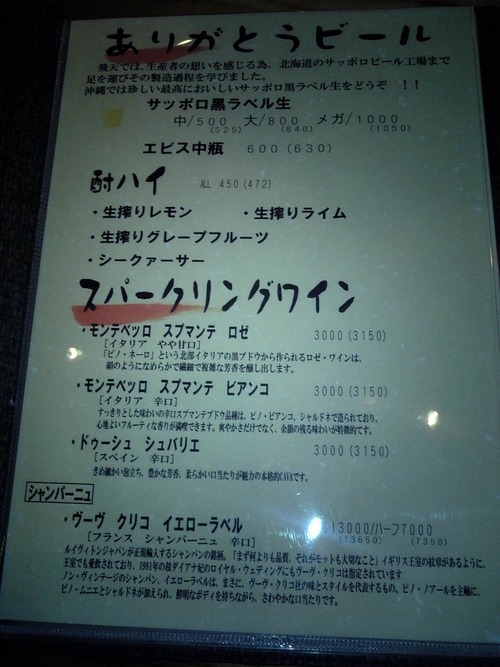 ありがとうビール
飛天では、生産者の想いを感じる為、北海道のサッポロビール工場まで
足を運びその製造過程を学びました。
沖縄では珍しい最高においしいサッポロ黒ラベル生をどうぞ ！！
サッポロ黒ラベル生
中/500 大/800 メガ/1000
(525) (840) (1050)
エビス中瓶 600(630)
酎ハイ ALL 450(472)
・生搾りレモン ・生搾りライム
・生搾りグレープフルーツ
・シークァーサー
スパークリングワイン
・モンテベッロ スプマンテ ロゼ 3000(3150)
[イタリア やや甘口]
「ピノ・ネーロ」という北部イタリアの黒ブドウから作られるロゼ・ワインは、
絹のようになめらかで繊細で複雑な芳香を醸し出します。
・モンテベッロ スプマンテ ビアンコ 3000(3150)
[イタリア 辛口]
すっきりとした味わいの辛口スプマンテブドウ品種は、ピノ・ビアンコ、シャルドネで造られており、
心地よいフルーティな香りが満喫できます。爽やかさだけでなく、余韻の残る味わいが特徴的です。
・ドゥーシュ シュバリエ 3000(3150)
[スペイン 辛口]
きめ細かい泡立ち、豊かな芳香、柔らかい口当たりが魅力の本格的CAVAです。
シャンパーニュ
・ヴーヴ クリコ イエローラベル 13000//ハーフ7000
[フランス シャンパーニュ 辛口] (13650) (7350)
ルイヴィトンジャパンが正規輸入するシャンパンの銘柄。「まず何よりも品質、それがモットも大切なこと」イギリス王室の紋章があるように、
王室でも愛飲されており、1981年の故ダイアナ妃のロイヤル・ウェディングにもヴーヴ・クリコは指定されています
ノン・ヴィンテージのシャンパン、イエローラベルは、まさに、ヴーヴ・クリコ社の味とスタイルを代表するもの。ピノ・ノアールを主軸に、
ピノ・ムニエとシャルドネが加えられ、鮮明なボディを持ちながら、さわやかな口当たりです。